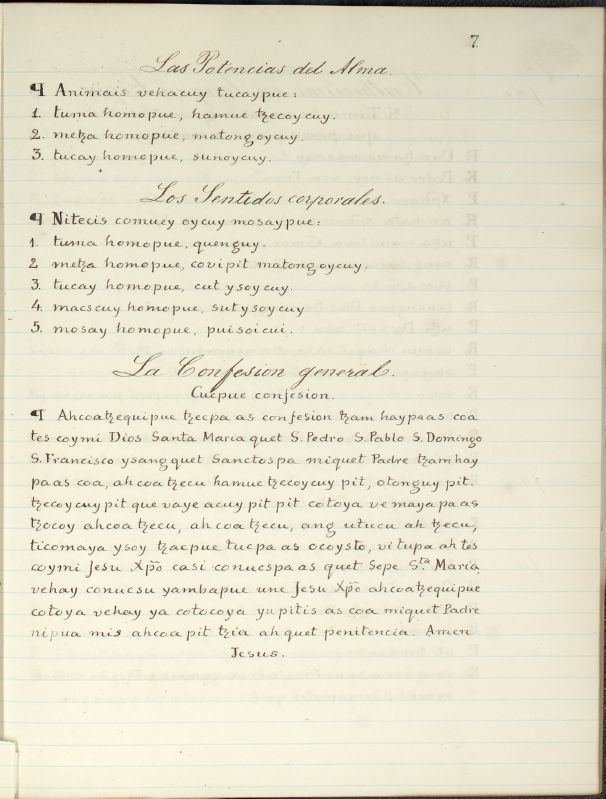 7
Las Potencias del Alma.
¶ Animais vehacuy tucaypue:
1. tuma homopue, hamue tzecoycuy.
2. metza homopue, matongoycuy.
3. tucay homopue, sunoycuy.
Los Sentidos corporales.
¶ Nitecis comuey oycuy mosaypue:
1. tuma homopue, quenguy.
2 metza homopue, covipit matongoycuy.
3. tucay homopue, cutysoycuy.
4. macscuy homopue, sutysoycuy
5. mosay homopue, puisoicui.
La Confesion general.
Cucpue confesion.
¶ Ahcoatzequipue tzecpa as confesion tzam haypaas coa
tes coymi Dios Santa Maria quet S. Pedro S. Pablo S. Domingo
S. Francisco ysang quet Sanctospa miquet Padre tzam hay
paas coa, ahcoatzecu hamue tzecoycuy pit, otonguy pit.
tzecoycuy pit que vaye acuy pit pit cotoya vemayapaas
tzocoy ahcoatzecu, ahcoatzecu, ang utucu ah tzecu,
ticomaya ysoy tzacpue tucpa as ocoysto, vitupa ah tes
coymi Jesu Xpõ casi conucspa as quet Sepe Sta. Maria
vehay conucsu yambapue une Jesu Xpõ ahcoatzequipue
cotoya vehay ya cotocoya yupitis as coa miquet Padre
nipua mis ahcoa pit tzia ah quet penitencia. Amen
Jesus.